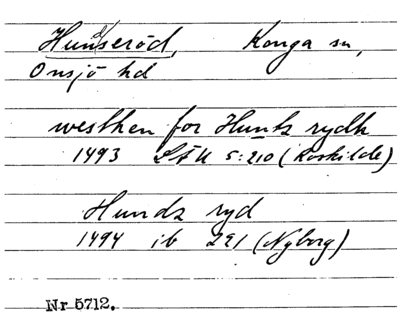 Hunseröd, Konga sn,
Onsjö hd
westhen for Hunts rydh
1493 LÅU 5:210 (Roskilde)
Hundz ryd
1494 ib 291 (Nyborg)
Nr 5712.